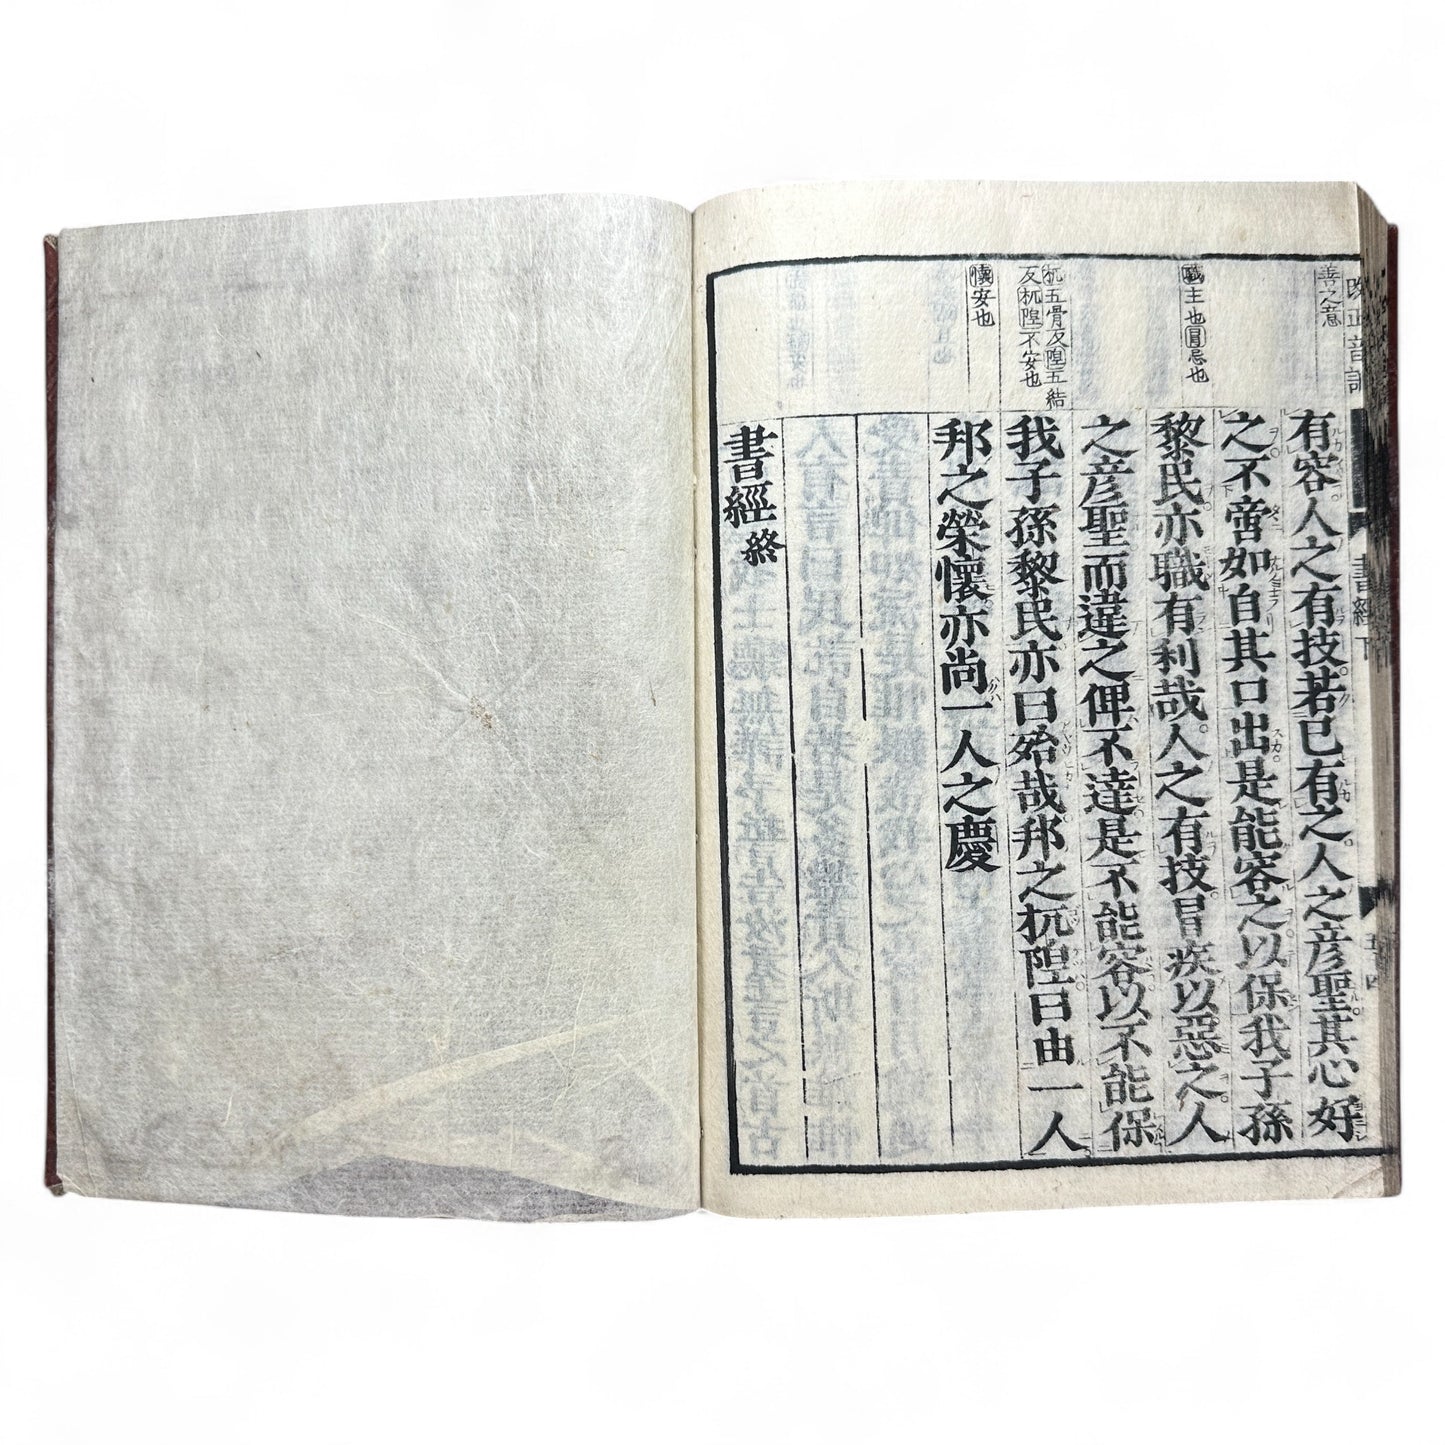 改正音訓
書經下
善之意
職主也冒忌也
杌五骨反隉五結
反杌隉不安也
懷安也
有容人之有技若已有之人之彥聖其心好
之不啻如自其口出是能容之以保我子孫
黎民亦職有利哉人之有技冒疾以惡之人
之彥聖而違之俾不達是不能容以不能保
我子孫黎民亦曰殆哉邦之杌隉曰由一人
邦之榮懷亦尚一人之慶
書經終